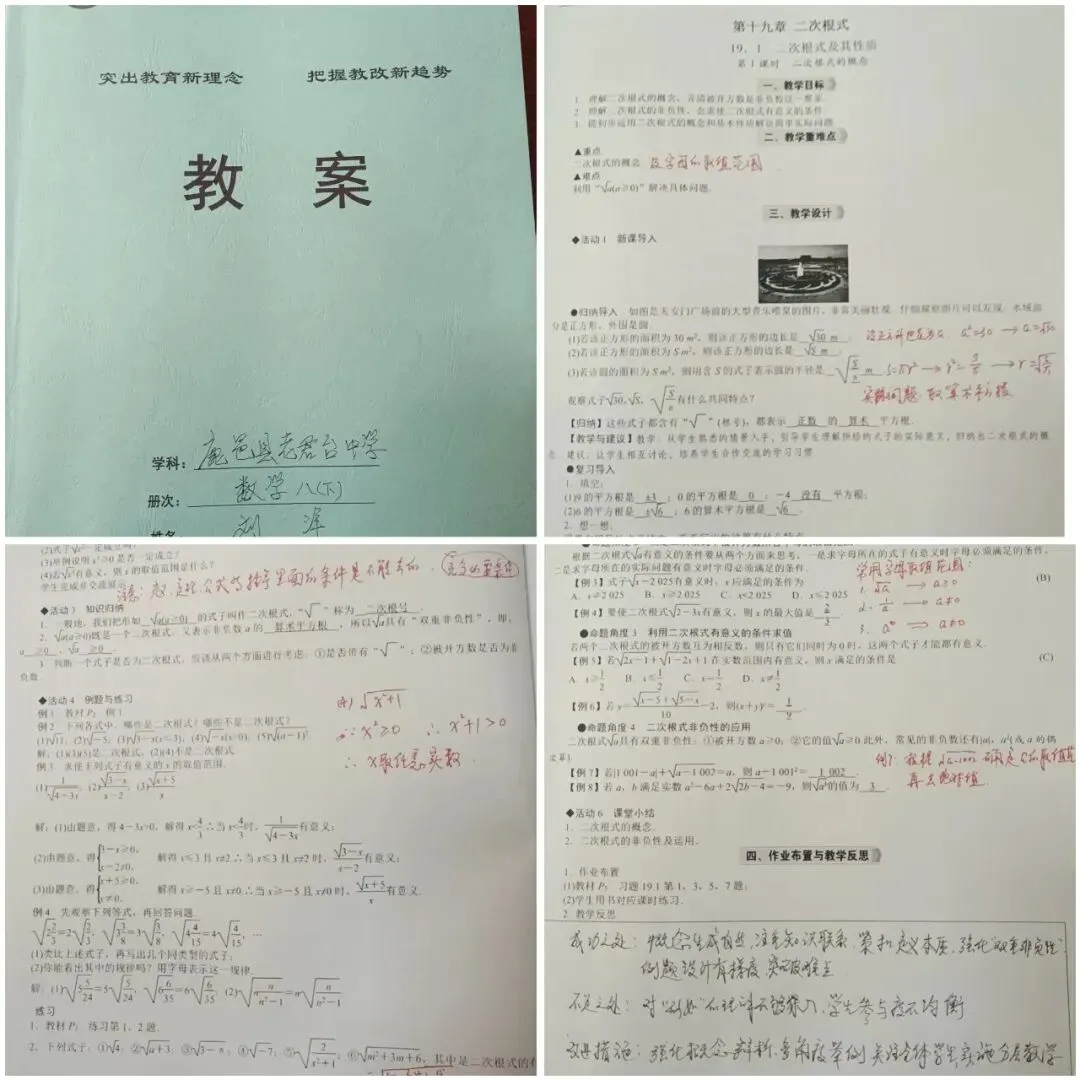 突出教育新理念 把握教改新趋势
教 案
学科: 鹿邑县老君台中学
册次: 数学八(下)
第十九章 二次根式
19.1 二次根式及其性质
第1课时 二次根式的概念
一、教学目标
1. 理解二次根式的概念,弄清被开方数是非负数这一要求.
2. 理解二次根式的非负性,会求使二次根式有意义的条件.
3. 能初步运用二次根式的概念和基本性质解决简单实际问题.
二、教学重难点
▲重点
二次根式的概念 及字母的取值范围
▲难点
利用“√a(a≥0)”解决具体问题.
三、教学设计
◆活动1 新课导入
●归纳导入 如图是天安门广场前的大型音乐喷泉的图片,非常美丽壮观.仔细观察图片可以发现,水域部
分是正方形,外围是圆.
(1)若该正方形的面积为30 m²,则该正方形的边长是 √30 m ; a²=30 → a=√30
(2)若该正方形的面积为S m²,则该正方形的边长是 √S m ;
(3)若该圆的面积为S m²,则用含S的式子表示圆的半径是 √(S/π) m. S=πr² → r²=S/π → r=√(S/π)
实际问题,取算术平方根
观察式子√30,√S,√(S/π)有什么共同特点?
【归纳】这些式子都含有“√”(根号),都表示 正数 的 算术 平方根.
【教学与建议】教学:从学生熟悉的情景入手,引导学生理解所给的式子的实际意义,归纳出二次根式的概
念.建议:让学生相互讨论,培养学生合作交流的学习习惯.
●复习导入
1. 填空:
(1)9的平方根是 ±3 ;0的平方根是 0 ;-4 没有 平方根;
(2)6的平方根是 ±√6 ;6的算术平方根是 √6 .
2. 想一想:
(3)举例说明x²≥0是否一定成立?
(4)若√x有意义,则x的取值范围是什么?
学生完成并交流展示.
◆活动3 知识归纳
1. 一般地,我们把形如 √a(a≥0) 的式子叫作二次根式,“√”称为 二次根号 .
2. √a(a≥0)既是一个二次根式,又表示非负数a的 算术平方根 ,所以√a具有“双重非负性”,即:
a ≥0 ,√a ≥0 .
3. 判断一个式子是否为二次根式,应该从两个方面进行考虑:①是否带有“√”;②被开方数是否为非
负数.
◆活动4 例题与练习
例1 教材P₂ 例1.
例2 下列各式中,哪些是二次根式?哪些不是二次根式?
(1)√11; (2)√-5; (3)√3-x(x≤3); (4)√-x(x>0); (5)√(a-1)².
解:(1)(3)(5)是二次根式,(2)(4)不是二次根式.
例3 求使下列式子有意义的x的取值范围.
(1)1/√(4-3x); (2)√(3-x)/(x-2); (3)√(x+5)/x.
√(x²+1)
∵ x²≥0 ∴ x²+1>0
∴ x取任意实数.
解:(1)由题意,得4-3x>0,解得x<4/3.∴当x<4/3时,1/√(4-3x)有意义;
(2)由题意,得{3-x≥0, x-2≠0, 解得x≤3且x≠2.∴当x≤3且x≠2时,√(3-x)/(x-2)有意义;
(3)由题意,得{x+5≥0, x≠0, 解得x≥-5且x≠0.∴当x≥-5且x≠0时,√(x+5)/x有意义.
例4 先观察下列等式,再回答问题.
√(2 2/3)=2√(2/3),√(3 3/8)=3√(3/8),√(4 4/15)=4√(4/15),…
(1)类比上述式子,再写出几个同类型的式子;
(2)你能看出其中的规律吗?用字母表示这一规律.
解:(1)√(5 5/24)=5√(5/24),√(6 6/35)=6√(6/35);(2)√(n n/(n²-1))=n√(n/(n²-1))
练习
1. 教材P₃ 练习第1,2题.
2. 下列式子:①√4;②√a+3;③√3-π;④√-7;⑤√(2/(x²+1));⑥√(m²+3m+6),其中是二次根式的有
根据二次根式√a有意义的条件要从两个方面来思考,一是求字母所在的式子有意义时字母必须满足的条件,
二是求字母所在的实际问题有意义时字母必须满足的条件.
常用字母取值范围:
【例3】式子√(x-2 025)有意义时,x应满足的条件为 (B)
A. x≠2 025 B. x≥2 025 C. x<2 025 D. x≤2 025
1. √a → a≥0
【例4】要使二次根式√(2-3x)有意义,则x的最大值是 2/3 .
2. 1/a → a≠0
3. a⁰ → a≠0
●命题角度3 利用二次根式有意义的条件求值
若两个二次根式的被开方数互为相反数,则只有它们同时为0时,这两个式子才能都有意义.
【例5】若√(2x-1)+√(1-2x)+1在实数范围内有意义,则x满足的条件是 (C)
A. x≥1/2 B. x≤1/2 C. x=1/2 D. x≠1/2
【例6】若y=(√(x-5)+√(5-x))/10-2,则(x+y)ʸ= .
●命题角度4 二次根式非负性的应用
二次根式√a具有双重非负性:①被开方数a≥0;②它的值√a≥0.此外,常见的非负数还有|a|,a²(或a的偶
次幂).
【例7】若|1 001-a|+√(a-1 002)=a,则a-1 001²= 1 002 .
例7: 根据√(a-1002)确定a的取值范
再去绝对值.
【例8】若a,b满足实数a²-6a+2√(2b-4)=-9,则√(aᵇ)的值为 3 .
◆活动6 课堂小结
1. 二次根式的概念.
2. 二次根式的非负性及运用.
四、作业布置与教学反思
1. 作业布置
(1)教材P₅ 习题19.1第1,3,5,7题;
(2)学生用书对应课时练习.
2. 教学反思
成功之处: 概念生成自然,注重知识联系,紧扣定义本质,强化“双重非负性”,
例题设计有梯度,突破难点
不足之处: 学生参与度不均衡
改进措施: 强化概念辨析,多角度举例,关注全体学生,实施分层教学